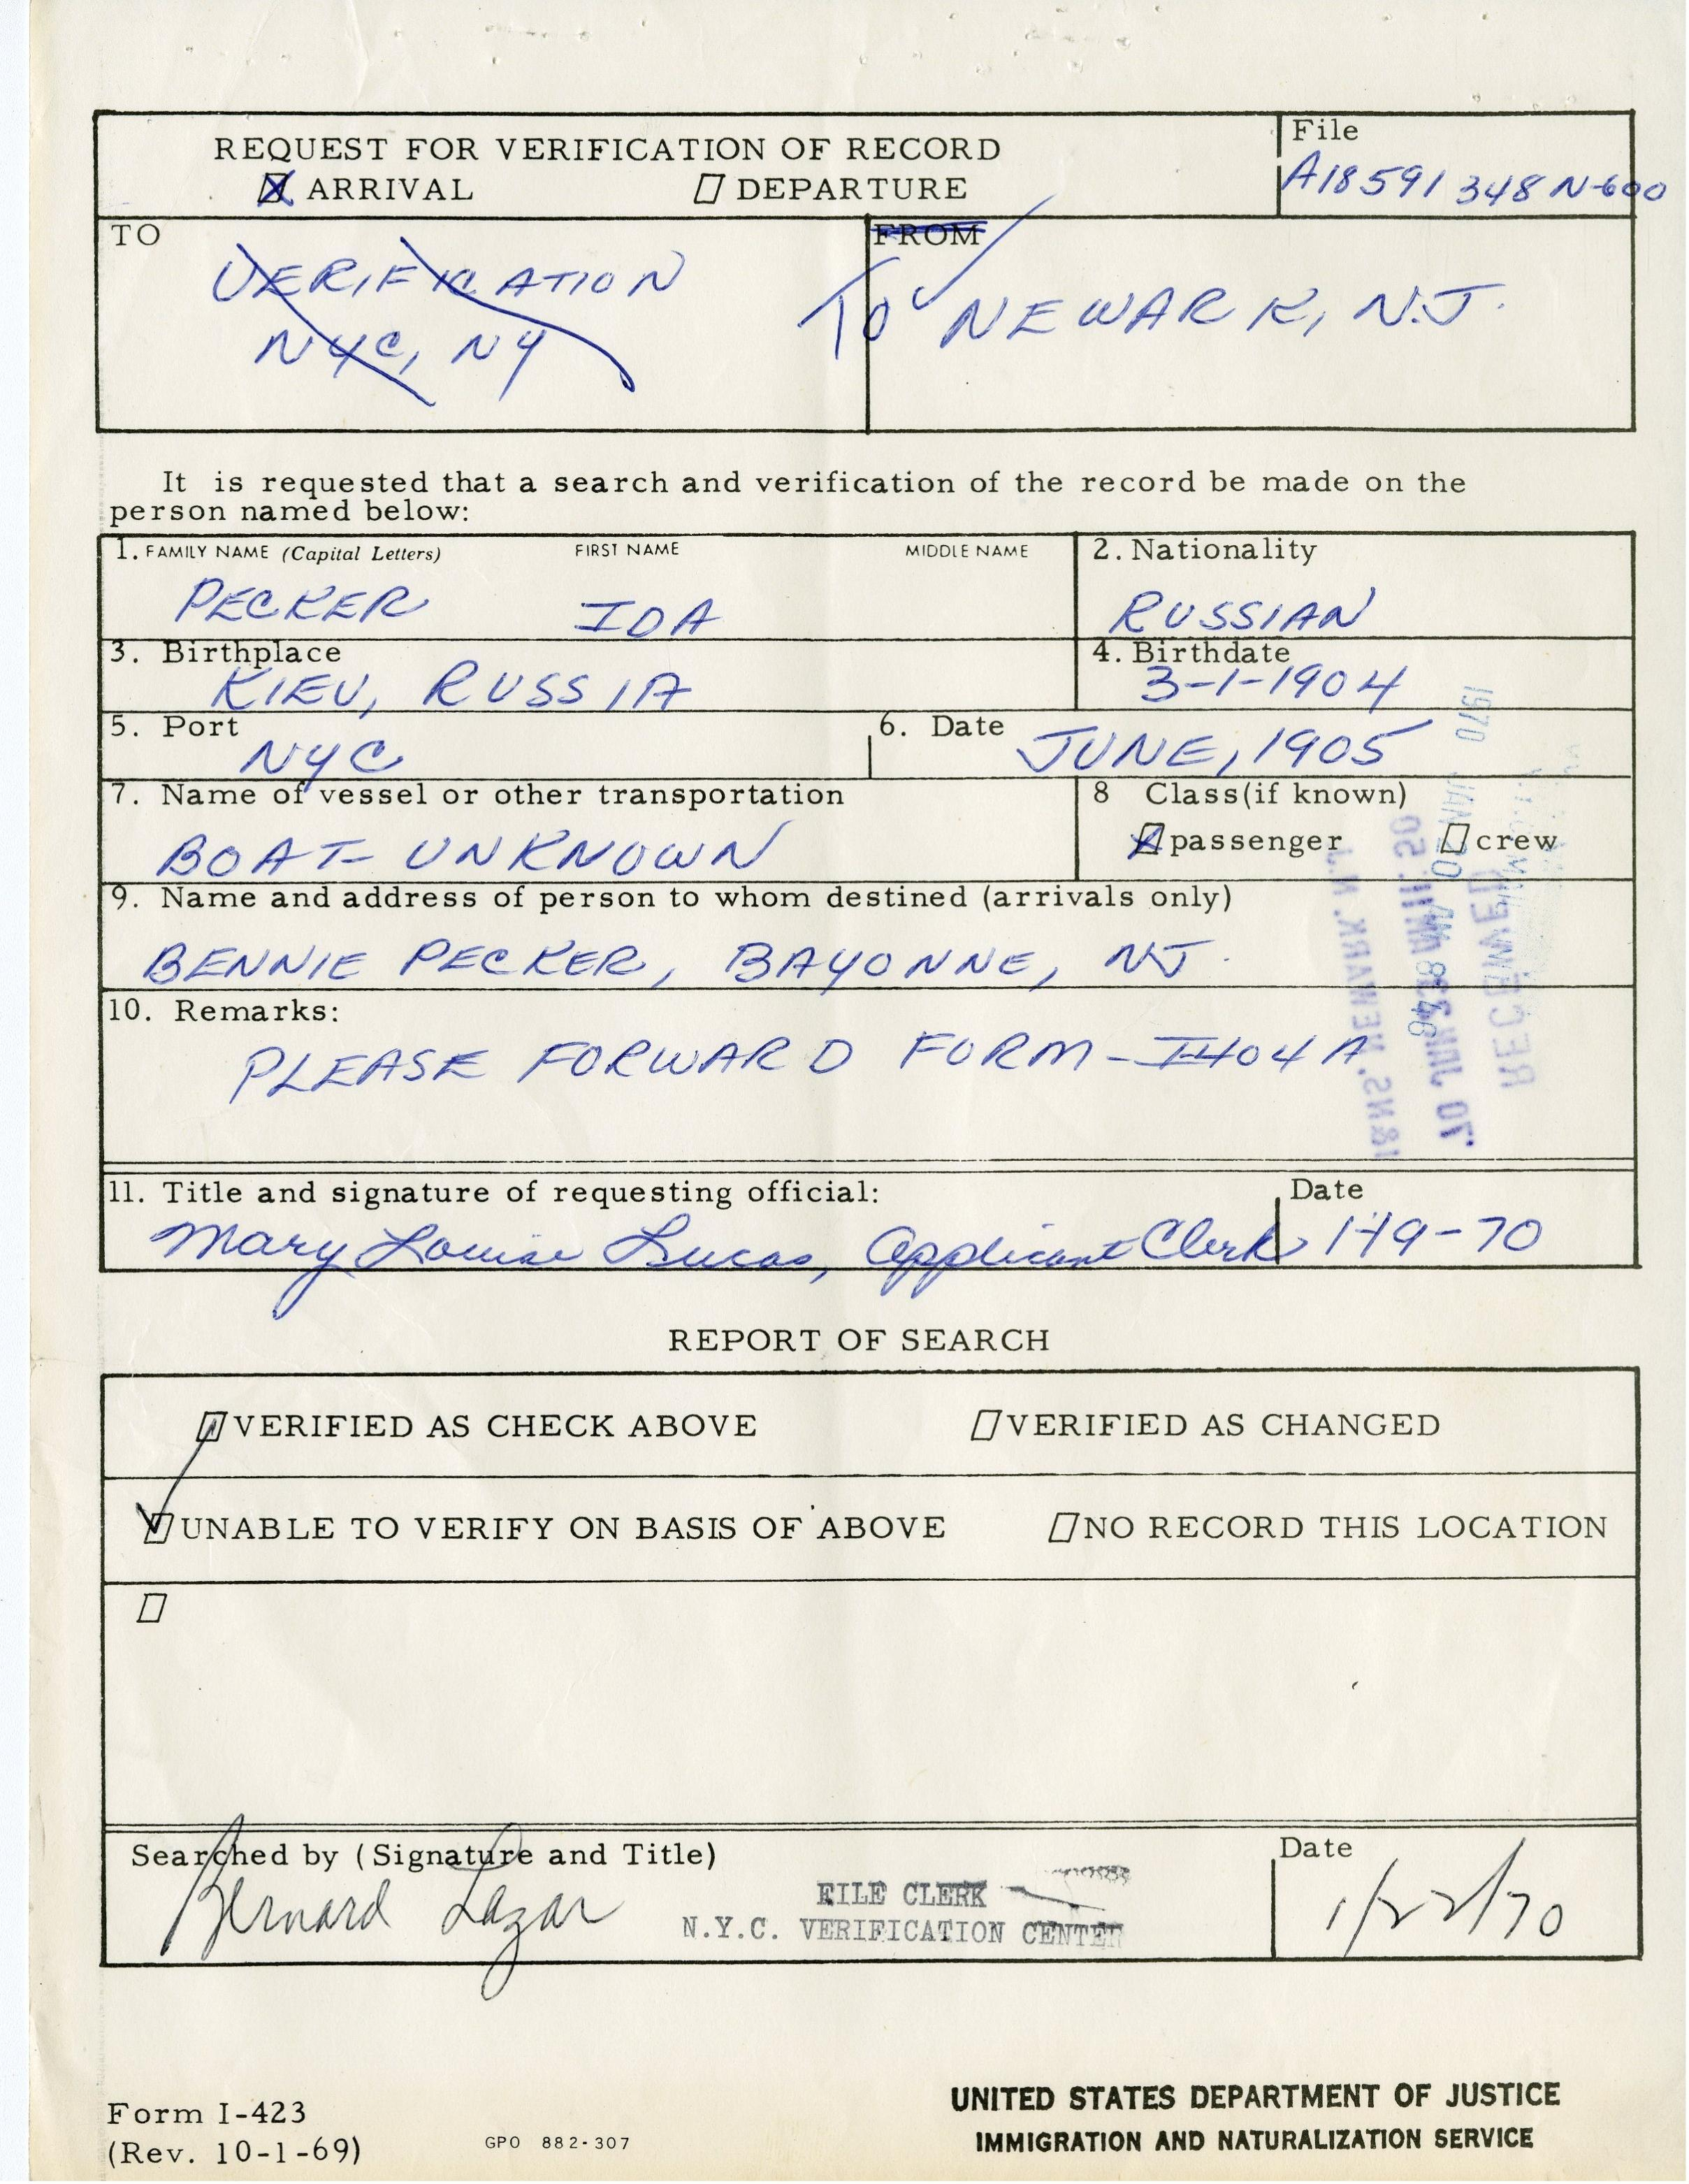 REQUEST FOR VERIFICATION OF RECORD
ARRIVAL DEPARTURE
File
A18 591 348 N-600
TO
VERIFICATION
NYC, NY
FROM
TO NEWARK, N.J.
It is requested that a search and verification of the record be made on the
person named below:
1. FAMILY NAME (Capital Letters) FIRST NAME MIDDLE NAME
PECKER IDA
2. Nationality
RUSSIAN
3. Birthplace
KIEV, RUSSIA
4. Birthdate
3-1-1904
5. Port
NYC
6. Date
JUNE, 1905
7. Name of vessel or other transportation
BOAT - UNKNOWN
8 Class (if known)
passenger crew
9. Name and address of person to whom destined (arrivals only)
BENNIE PECKER, BAYONNE, NJ.
10. Remarks:
PLEASE FORWARD FORM - I404A
RECEIVED
I&NS, NEWARK, N.J.
1970
11. Title and signature of requesting official:
Mary Louise Lucas, Applicant Clerk
Date
1-19-70
REPORT OF SEARCH
VERIFIED AS CHECK ABOVE VERIFIED AS CHANGED
UNABLE TO VERIFY ON BASIS OF ABOVE NO RECORD THIS LOCATION
Searched by (Signature and Title)
Bernard Lazar
FILE CLERK
N.Y.C. VERIFICATION CENTER
Date
1/22/70
Form I-423
(Rev. 10-1-69)
GPO 882-307
UNITED STATES DEPARTMENT OF JUSTICE
IMMIGRATION AND NATURALIZATION SERVICE